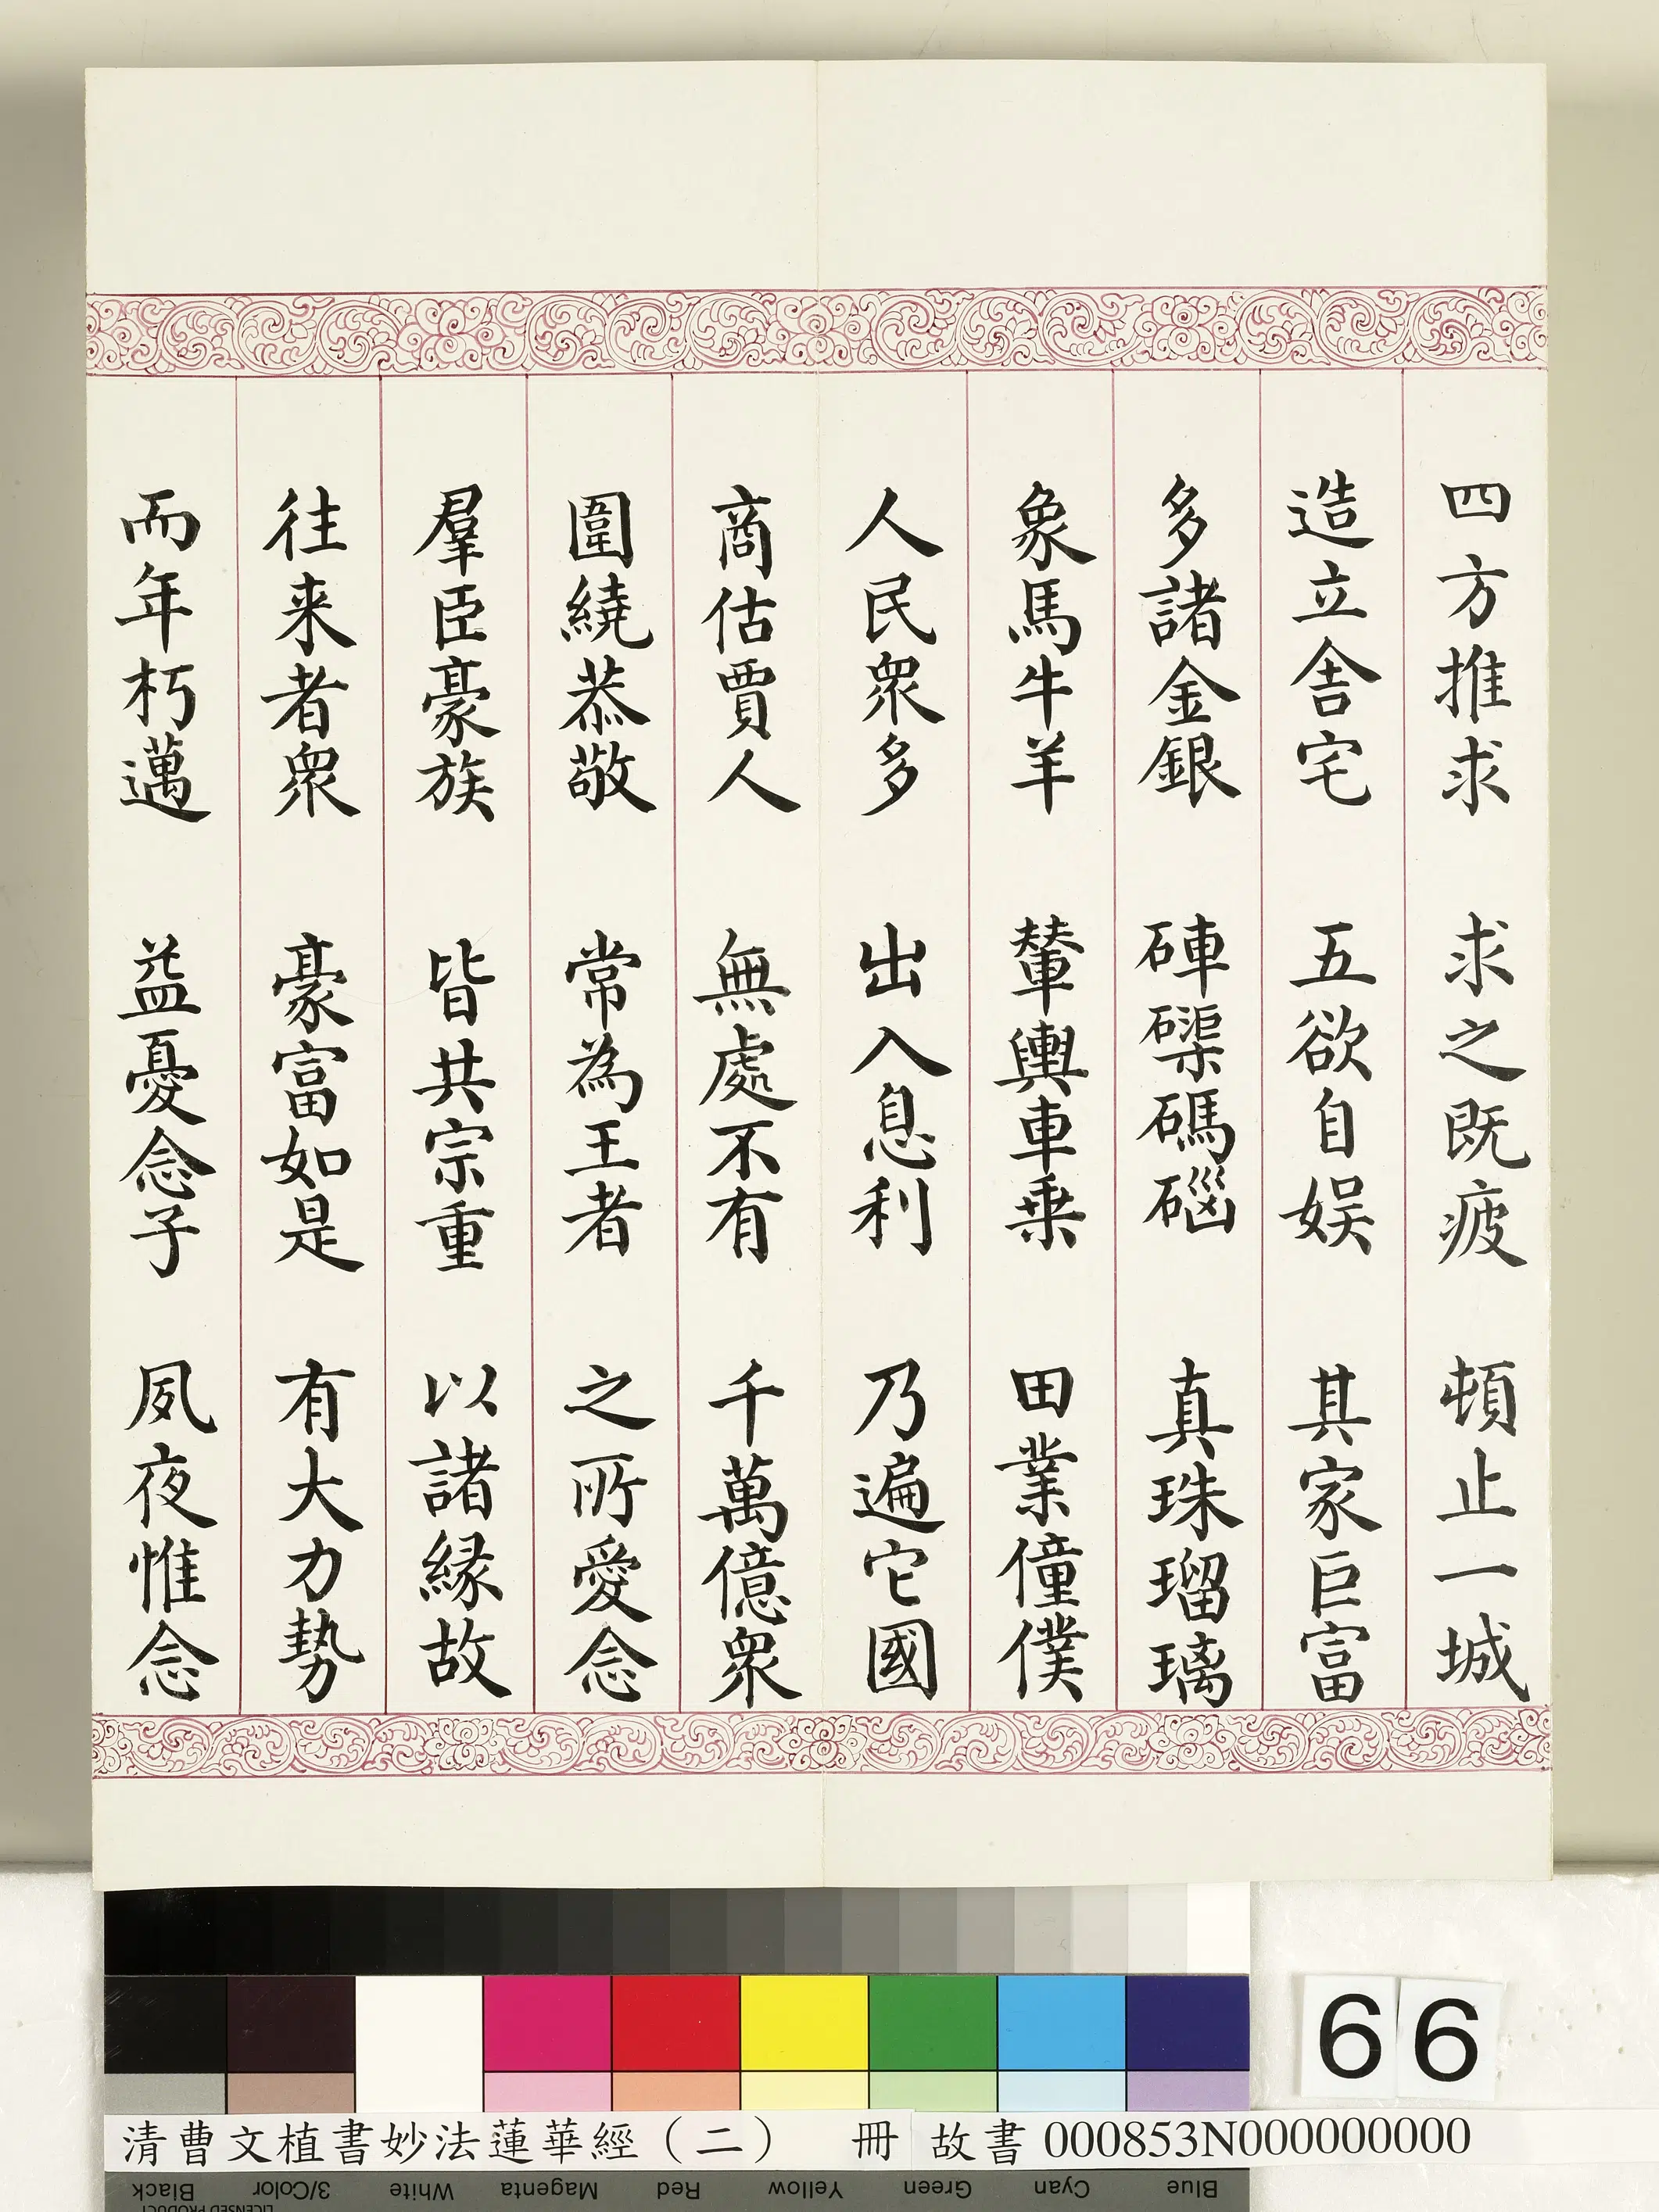 四方推求 求之既疲 頓止一城
造立舍宅 五欲自娱 其家巨富
多諸金銀 硨磲碼碯 真珠瑠璃
象馬牛羊 輦輿車乗 田業僮僕
人民衆多 出入息利 乃遍它國
商估賈人 無處不有 千萬億衆
圍繞恭敬 常為王者 之所愛念
羣臣豪族 皆共宗重 以諸縁故
往来者衆 豪富如是 有大力勢
而年朽邁 益憂念子 夙夜惟念
66
清曹文植書妙法蓮華經（二） 冊 故書 000853N000000000
Black 3/Color White Magenta Red Yellow Green Cyan Blue
LICENSED PRODUCT